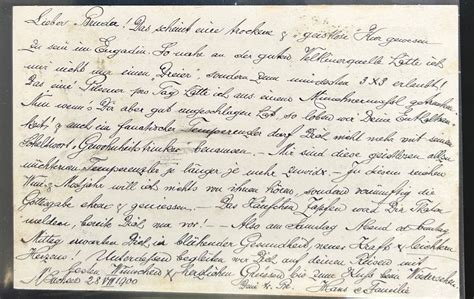 Lieber Bruder! Das scheint eine trockene & geistlose Kur gewesen
zu sein im Engadin. So nahe an der guten Veltlinerquelle hätte ich
mir nicht nur einen Dreier, sondern dann wenigstens 3x3 erlaubt!
Das eine Pilsner pro Tag hätte ich aus einem Münchner getrunken
Nun wenn's Dir aber gut angeschlagen hat, so loben wir Deine Enthaltsam-
keit! & auch ein fanatischer Temperenzler darf Dich nicht mehr mit
Gewohnheitstrinker benamsen. — Mir sind diese geistlosen allzu
nüchternen Temperenzler je länger je mehr zuwider — in diesem reichen
Wein & Mostjahr will ich nichts von ihnen hören, sondern vernünftig die
Gottesgabe ehren & geniessen. — Das Zapfen wird Dir
melden, bereite Dich nur vor! — Also am Samstag Abend od. Sonntag
Mittag erwarten Dich in blühender Gesundheit, neuer Kraft & leichteren
Herzens! Unterdessen begleiten wir Dich auf deinem mit
besten Wünschen & herzlichen Grüssen bis zum Kuss beim Wiedersehen
28 VIII 1900 Dein Hans & Familie